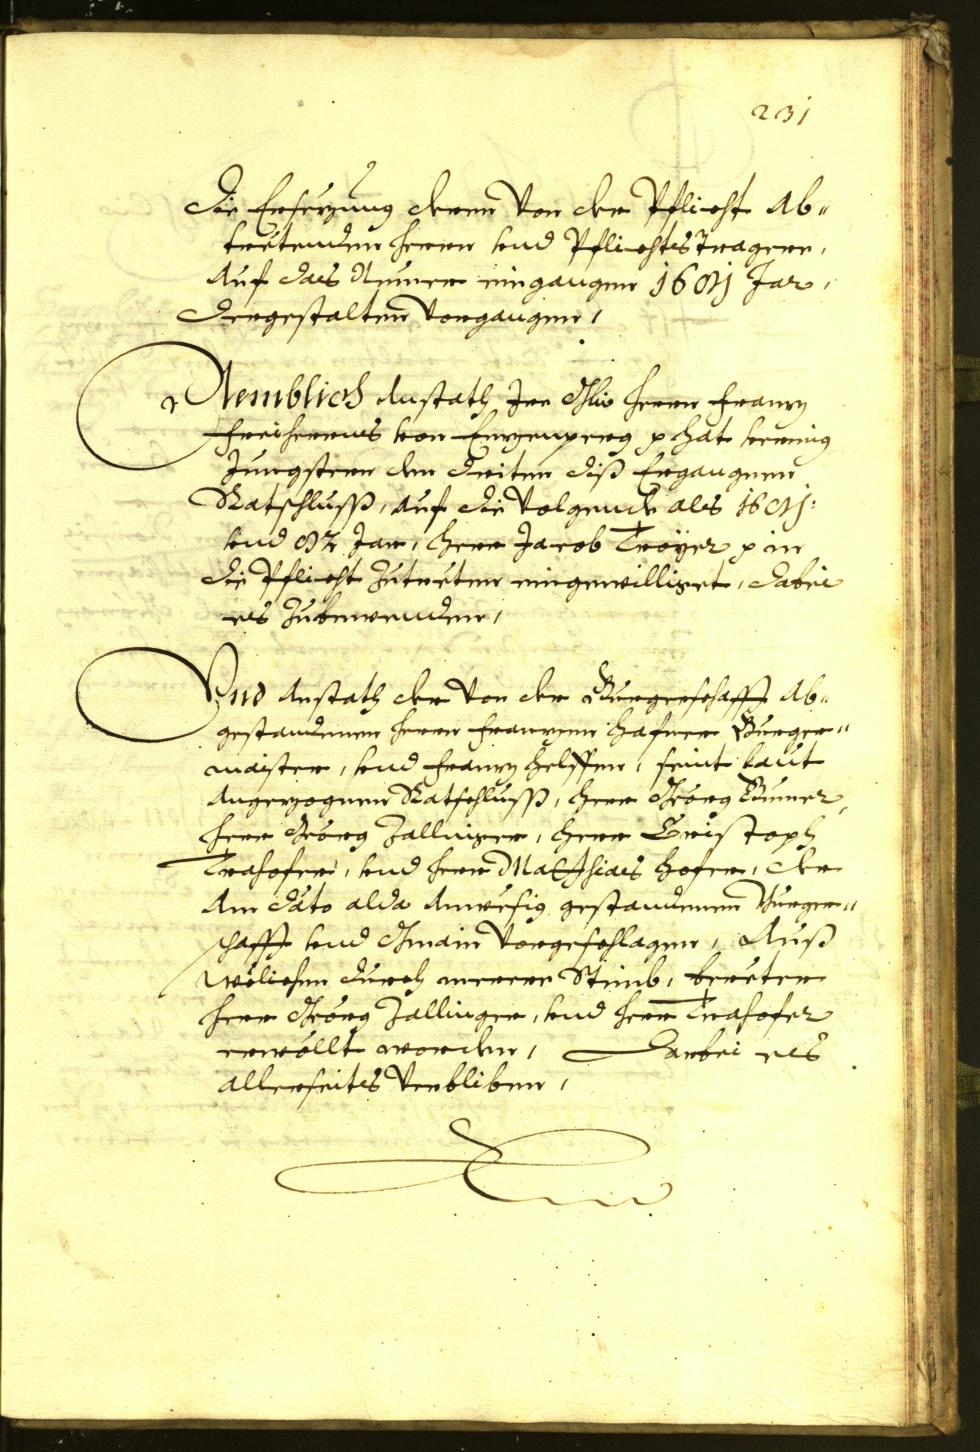 231
die Ersezung deren von der Pflicht Ab=
tretenden Herrn vnd Pflichts Tragern,
Auf das Neuen eingangen 1691 Jar,
dergestalten vorgangen,
Nemblich Anstath Irr Herrn Franz
Freiherrns von Enzenperg p hat
Jungstern den driten diß Ergangnen
Ratschluss, Auf die volgende als 1691:
vnd 92 Jar, Herr Jacob Troyer p in
die Pflicht Zutreten eingewilliget, dabei
es Zubewenden,
Vnd Anstath der von der Burgerschafft Ab=
gestandenen Herrn Franzen Hafner Burger=
maister, vnd Franz Helffen, seint laut
Angezognen Ratschluss, Herr Georg
Herr Georg Zallinger, Herr Cristoph
Trahofer, vnd Herr Mathias Hofer, der
Am dato alda Anwesig gestandenen Burger=
schafft vnd Gmain vorgeschlagen, Auß
wölichen durch merere Stimb,
Herr Georg Zallinger, vnd Herr Trahofer
erwöllt worden, Darbei es
allerseits verbliben,